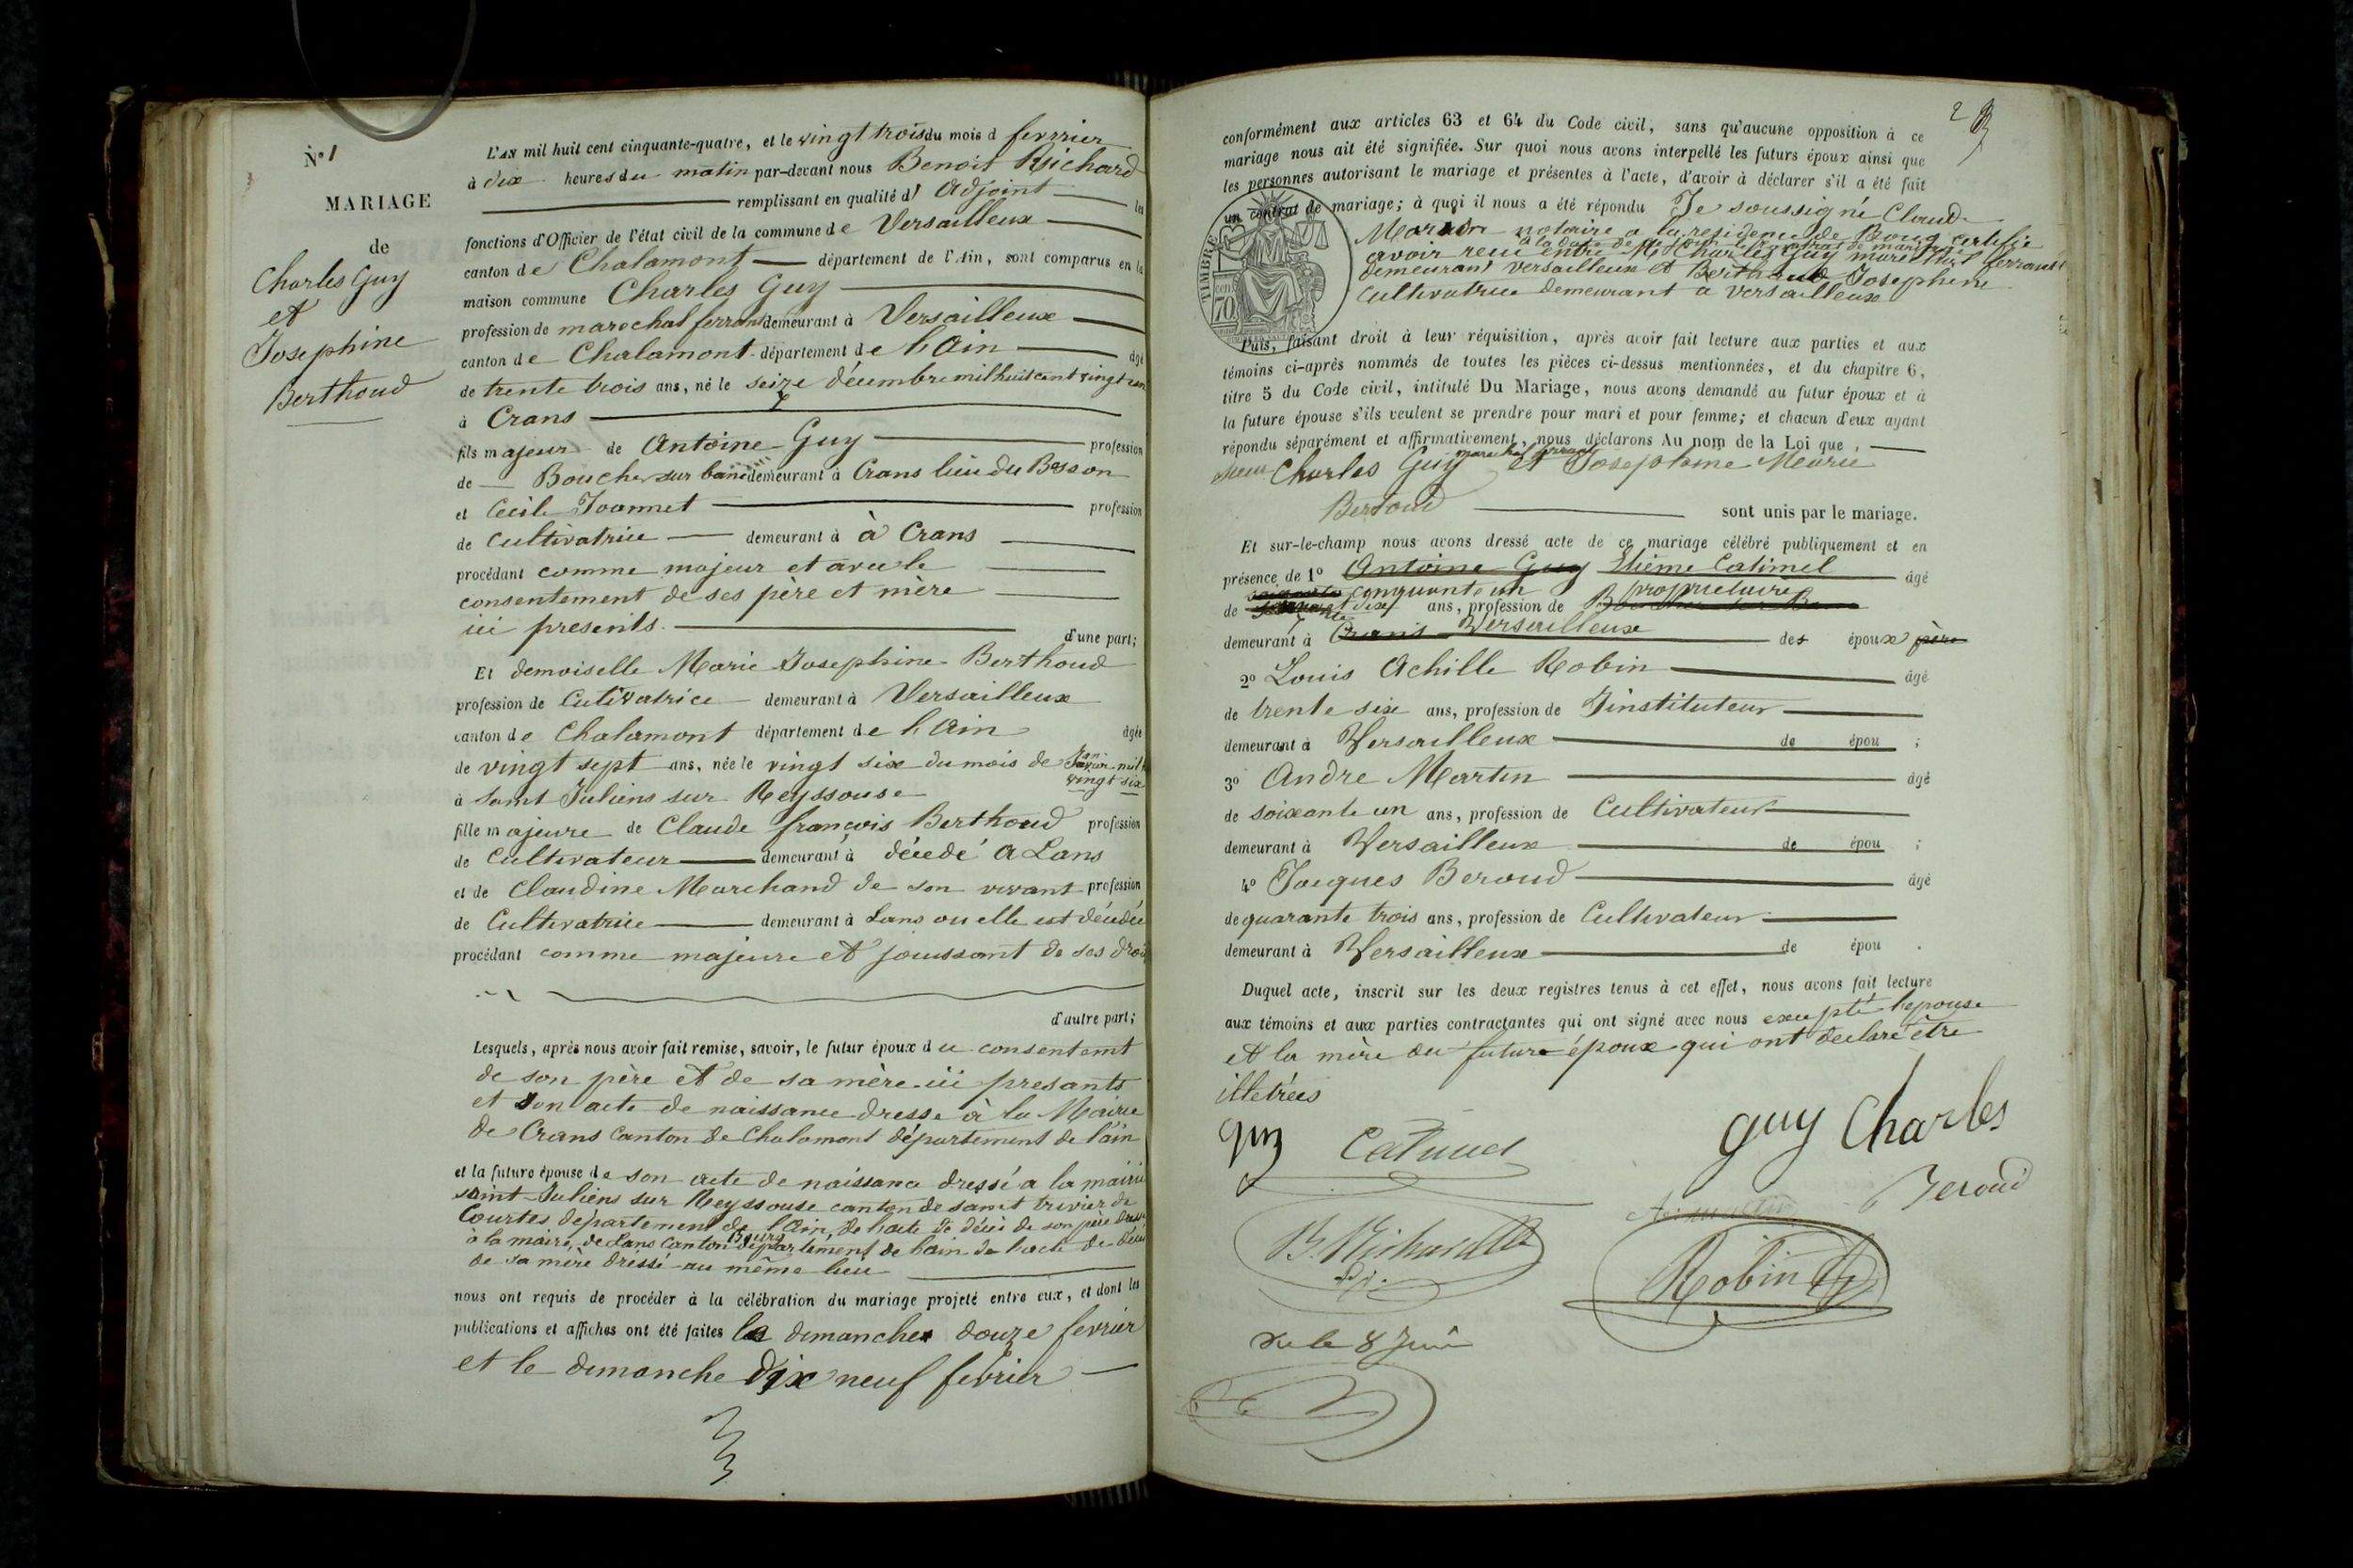 N° 1
MARIAGE
de
Charles Guy
et
Josephine
Berthoud
L'AN mil huit cent cinquante-quatre, et le vingt trois du mois d fevrrier
à dix heures du matin par-devant nous Benoit Richard
remplissant en qualité d' Adjoint les
fonctions d'Officier de l'état civil de la commune de Versailleux
canton de Chalamont département de l'Ain, sont comparus en la
maison commune Charles Guy
profession de marechal ferrant demeurant à Versailleux
canton de Chalamont département de l'Ain âgé
de trente trois ans, né le seize décembre mil huit cent vingt
à Crans
fils majeur de Antoine Guy profession
de Boucher sur banc demeurant à Crans lieu du Besson
et Cecile Joannet profession
de Cultivatrice demeurant à à Crans
procédant comme majeur et avec le
consentement de ses père et mère
ici presents. d'une part;
Et demoiselle Marie Josephine Berthoud
profession de Cultivatrice demeurant à Versailleux
canton de Chalamont département de l'Ain âgée
de vingt sept ans, née le vingt six du mois de
vingt six
à Saint Juliens sur Reyssouse
fille majeure de Claude françois Berthoud profession
de Cultivateur demeurant à décedé a Lans
et de Claudine Marchand de son vivant profession
de Cultivatrice demeurant à Lans ou elle est décedée
procédant comme majeure et jouissant de ses droi
d'autre part;
Lesquels, après nous avoir fait remise, savoir, le futur époux du consentemt
de son père et de sa mère ici presants
et son acte de naissance dresse à la Mairie
de Crans Canton de Chalamont département de l'ain
et la future épouse de son acte de naissance dressé a la mairie
saint Juliens sur Reyssouse canton de saint trivier de
Courtes département de l'Ain, de l'acte de décès de son père dressé
à la mairie de Lans Canton Bourg département de l'ain de l'acte de décè
de sa mère dressé au même lieu
nous ont requis de procéder à la célébration du mariage projeté entre eux, et dont les
publications et affiches ont été faites le dimanche douze fevrier
et le dimanche dix neuf fevrier
2
conformément aux articles 63 et 64 du Code civil, sans qu'aucune opposition à ce
mariage nous ait été signifiée. Sur quoi nous avons interpellé les futurs époux ainsi que
les personnes autorisant le mariage et présentes à l'acte, d'avoir à déclarer s'il a été fait
un contrat de mariage; à quoi il nous a été répondu Je soussigné Claude
notaire a la residence de Bourg certifie
à la date de ce jour le contrat de mariage
avoir recu entre M Charles Guy marechal ferrant
demeurant Versailleux et Berthoud Josephine
Cultivatrice demeurant a Versailleux
TIMBRE
70
Puis, faisant droit à leur réquisition, après avoir fait lecture aux parties et aux
témoins ci-après nommés de toutes les pièces ci-dessus mentionnées, et du chapitre 6,
titre 5 du Code civil, intitulé Du Mariage, nous avons demandé au futur époux et à
la future épouse s'ils veulent se prendre pour mari et pour femme; et chacun d'eux ayant
répondu séparément et affirmativement, nous déclarons Au nom de la Loi que,
marechal ferrant
Charles Guy et Josephine Marie
Bertoud sont unis par le mariage.
Et sur-le-champ nous avons dressé acte de ce mariage célébré publiquement et en
présence de 1° Antoine Guy Etieme Catimel âgé
de cinquante un ans, profession de propriétaire
demeurant à Crans Versailleux des époux père
2° Louis Achille Robin âgé
de trente six ans, profession de Jinstituteur
demeurant à Versailleux de épou ;
3° Andre Martin âgé
de soixante un ans, profession de Cultivateur
demeurant à Versailleux de épou ;
4° Jacques Beroud âgé
de quarante trois ans, profession de Cultivateur
demeurant à Versailleux de épou .
Duquel acte, inscrit sur les deux registres tenus à cet effet, nous avons fait lecture
aux témoins et aux parties contractantes qui ont signé avec nous excepté l'epouse
et la mère du future époux qui ont declaré être
illetrées
guy Catimel guy Charles
Beroud
B. Richard
Robin
Vu le 8 Juin